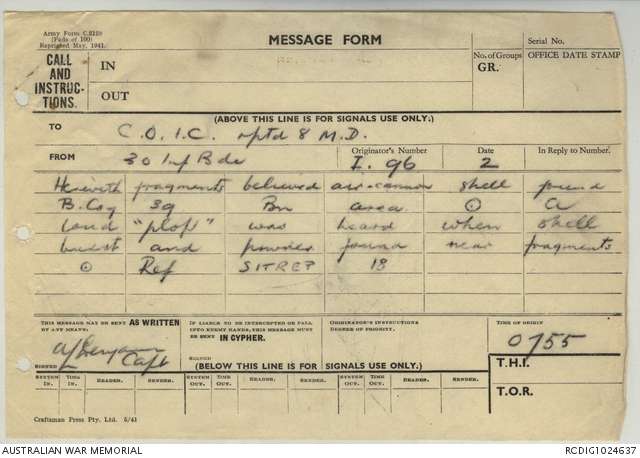 Army Form C.2128
(Pads of 100)
Reprinted May, 1941.
MESSAGE FORM
Serial No.
CALL
AND
INSTRUC-
TIONS.
IN
No. of Groups
GR.
OFFICE DATE STAMP
OUT
(ABOVE THIS LINE IS FOR SIGNALS USE ONLY.)
TO C.O.I.C. rptd 8 M.D.
FROM Originator's Number Date In Reply to Number.
30 Inf Bde I. 96 2
Herewith fragments believed air-cannon shell found
B. Coy 39 Bn area ⊙ A
loud "plop" was heard when shell
burst and powder found near fragments
⊙ Ref SITREP 18
THIS MESSAGE MAY BE SENT AS WRITTEN
BY ANY MEANS.
IF LIABLE TO BE INTERCEPTED OR FALL
INTO ENEMY HANDS, THIS MESSAGE MUST
BE SENT IN CYPHER.
ORIGINATOR'S INSTRUCTIONS
DEGREE OF PRIORITY.
TIME OF ORIGIN
0755
Capt
SIGNED
SIGNED
(BELOW THIS LINE IS FOR SIGNALS USE ONLY.)
T.H.I.
SYSTEM IN. TIME IN. READER. SENDER. SYSTEM OUT. TIME OUT. READER. SENDER. SYSTEM OUT. TIME OUT. READER. SENDER.
T.O.R.
Craftsman Press Pty. Ltd. 6/41
AUSTRALIAN WAR MEMORIAL
RCDIG1024637